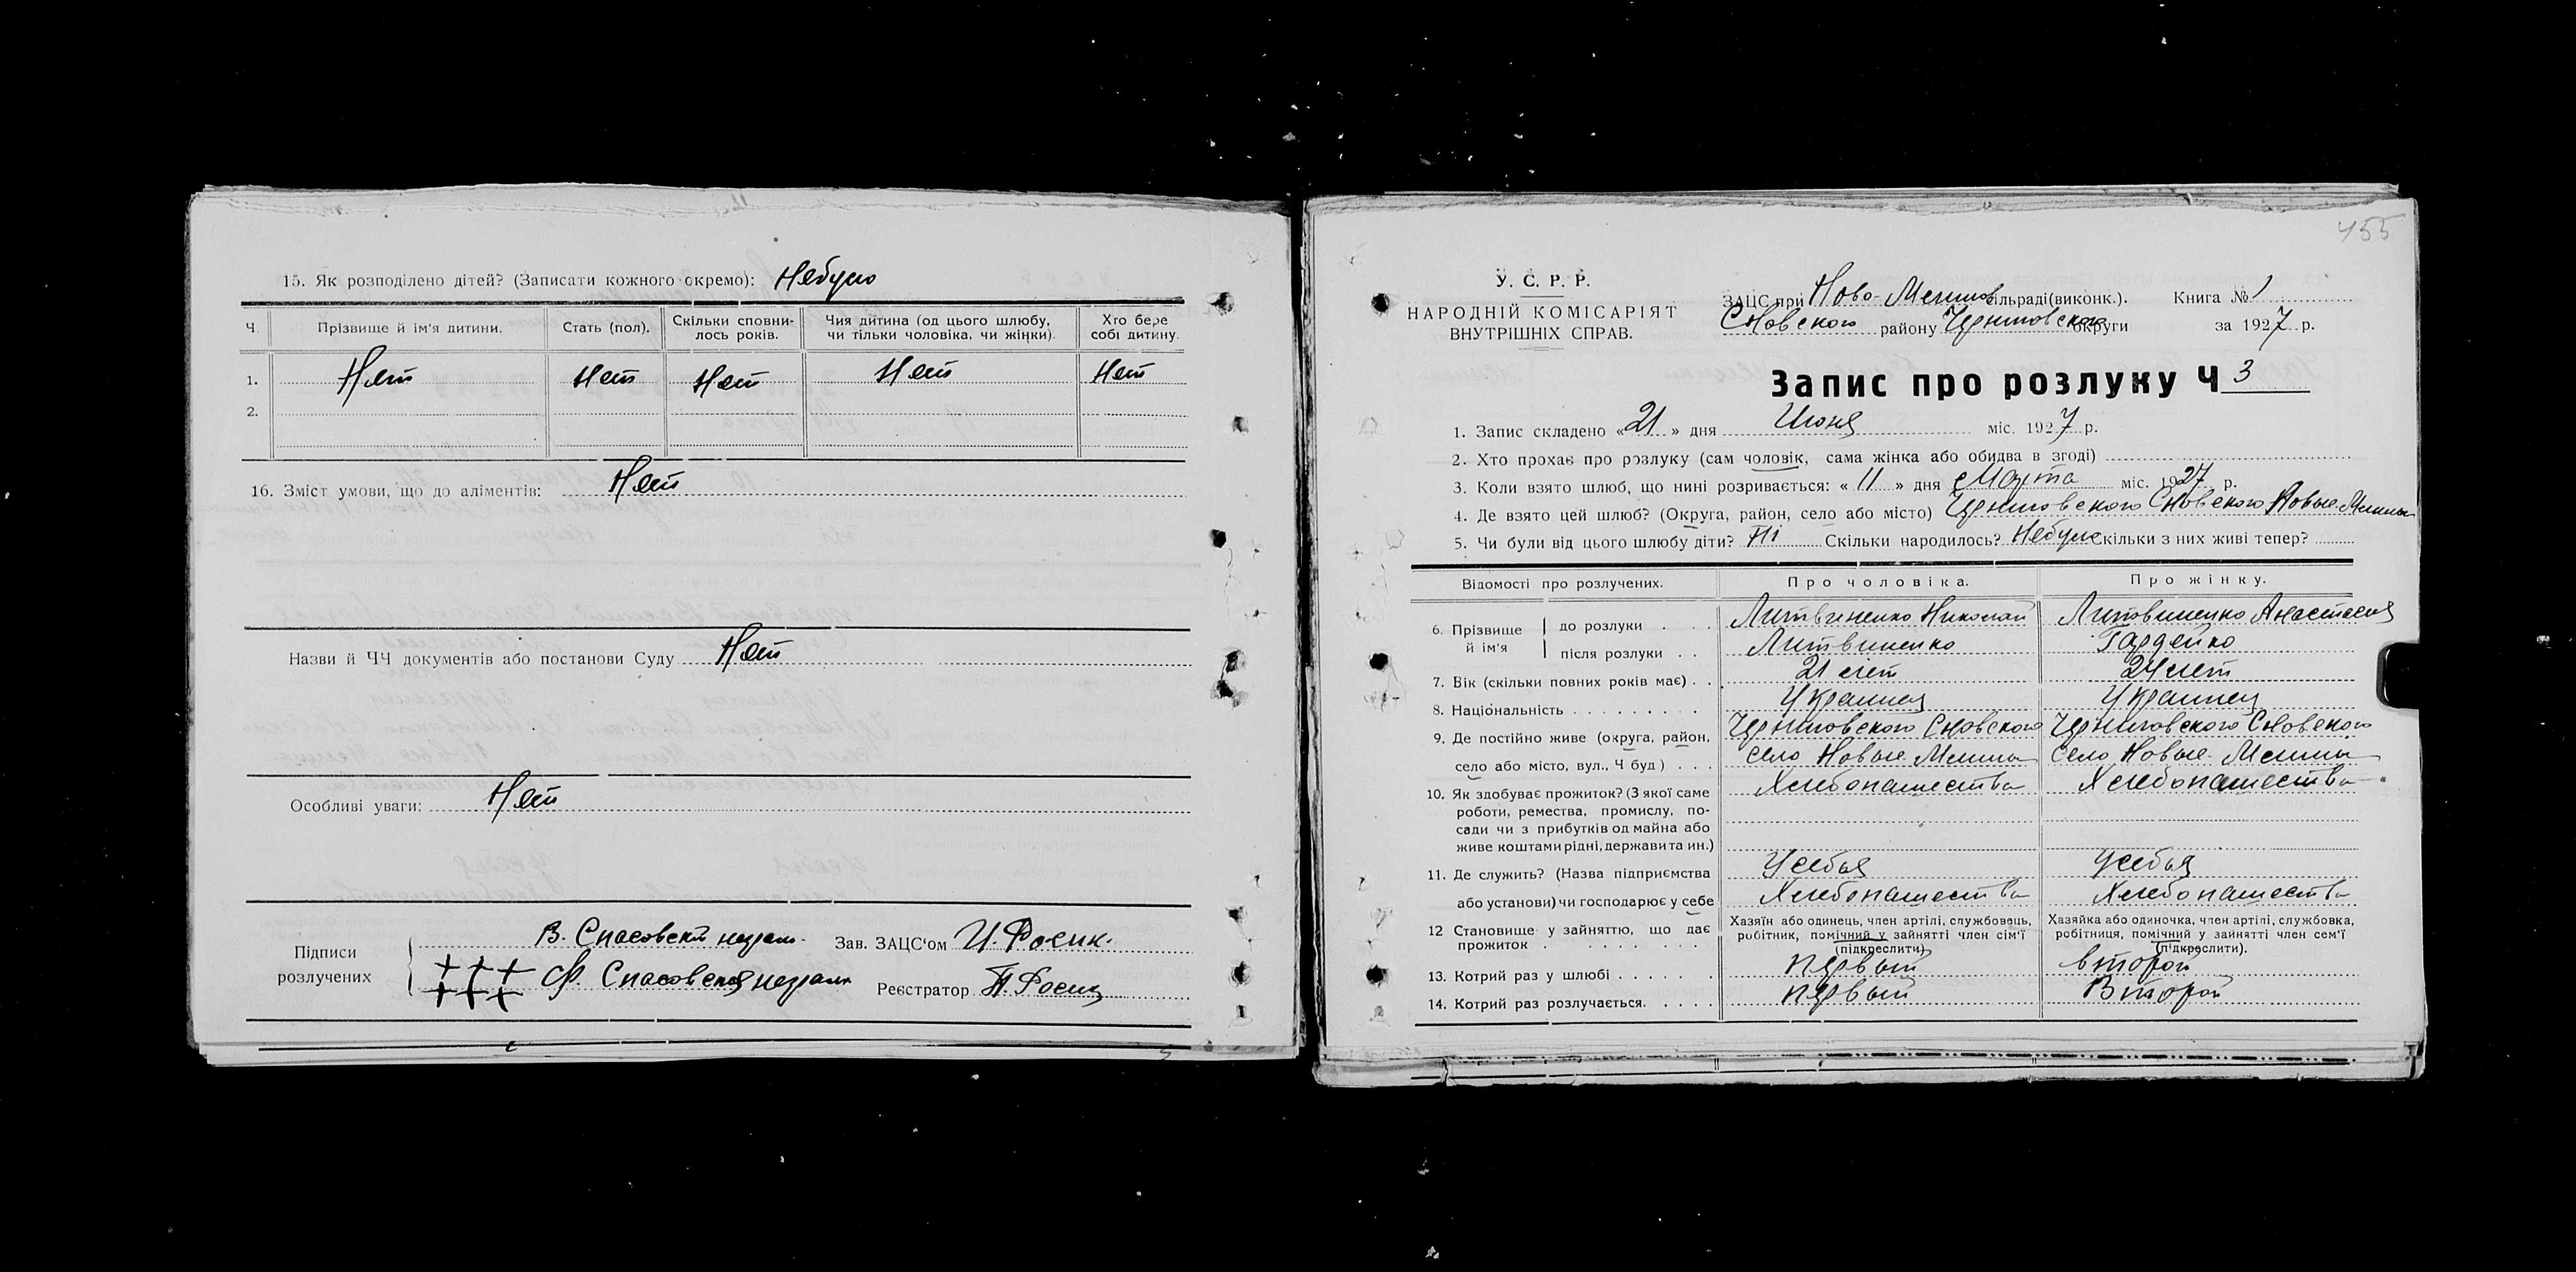 15. Як розподілено дітей? (Записати кожного окремо): Небуло
Ч. Прізвище й ім'я дитини. Стать (пол). Скільки сповни-лось років. Чия дитина (од цього шлюбу, чи тільки чоловіка, чи жінки). Хто бере собі дитину.
1. Нет Нет Нет Нет Нет
2.
16. Зміст умови, що до аліментів: Нет
Назви й ЧЧ документів або постанови Суду Нет
Особливі уваги: Нет
Підписи розлучених
В. Спасовский
Зав. ЗАЦС'ом И. Фосик.
+++ +++ Ф. Спасовская
Реєстратор П. Фосик
455
У. С. Р. Р.
НАРОДНІЙ КОМІСАРІЯТ
ВНУТРІШНІХ СПРАВ.
ЗАЦС при Ново-Менськ сільраді(виконк.). Книга № 1
Сновского району Черниговского округи за 1927 р.
Запис про розлуку Ч 3
1. Запис складено «21» дня Июня міс. 1927 р.
2. Хто прохає про розлуку (сам чоловік, сама жінка або обидва в згоді)
3. Коли взято шлюб, що нині розривається: «11» дня Марта міс. 1927 р.
4. Де взято цей шлюб? (Округа, район, село або місто) Черниговского Сновского Новые Млины
5. Чи були від цього шлюбу діти? Скільки народилось? Небуло Скільки з них живі тепер?
Відомості про розлучених. Про чоловіка. Про жінку.
6. Прізвище й ім'я
до розлуки Литвиненко Николай Литвиненко Анастасия
після розлуки Литвиненко Гардейко
7. Вік (скільки повних років має) 21 лет 24 лет
8. Національність Украинец Украинец
9. Де постійно живе (округа, район, Черниговского Сновского Черниговского Сновского
село або місто, вул., Ч буд) село Новые Млины село Новые Млины
10. Як здобуває прожиток? (З якої саме Хлебопашества Хлебопашества
роботи, ремества, промислу, по-
сади чи з прибутків од майна або
живе коштами рідні, держави та ин.)
11. Де служить? (Назва підприємства Усебья Усебья
або установи) чи господарює у себе Хлебопашества Хлебопашества
12 Становище у зайняттю, що дає прожиток
Хазяїн або одинець, член артілі, службовець, робітник, помічний у зайнятті член сім'ї (підкреслити).
Хазяйка або одиночка, член артілі, службовка, робітниця, помічний у зайнятті член сем'ї (підкреслити).
13. Котрий раз у шлюбі первый второй
14. Котрий раз розлучається. первый Второй